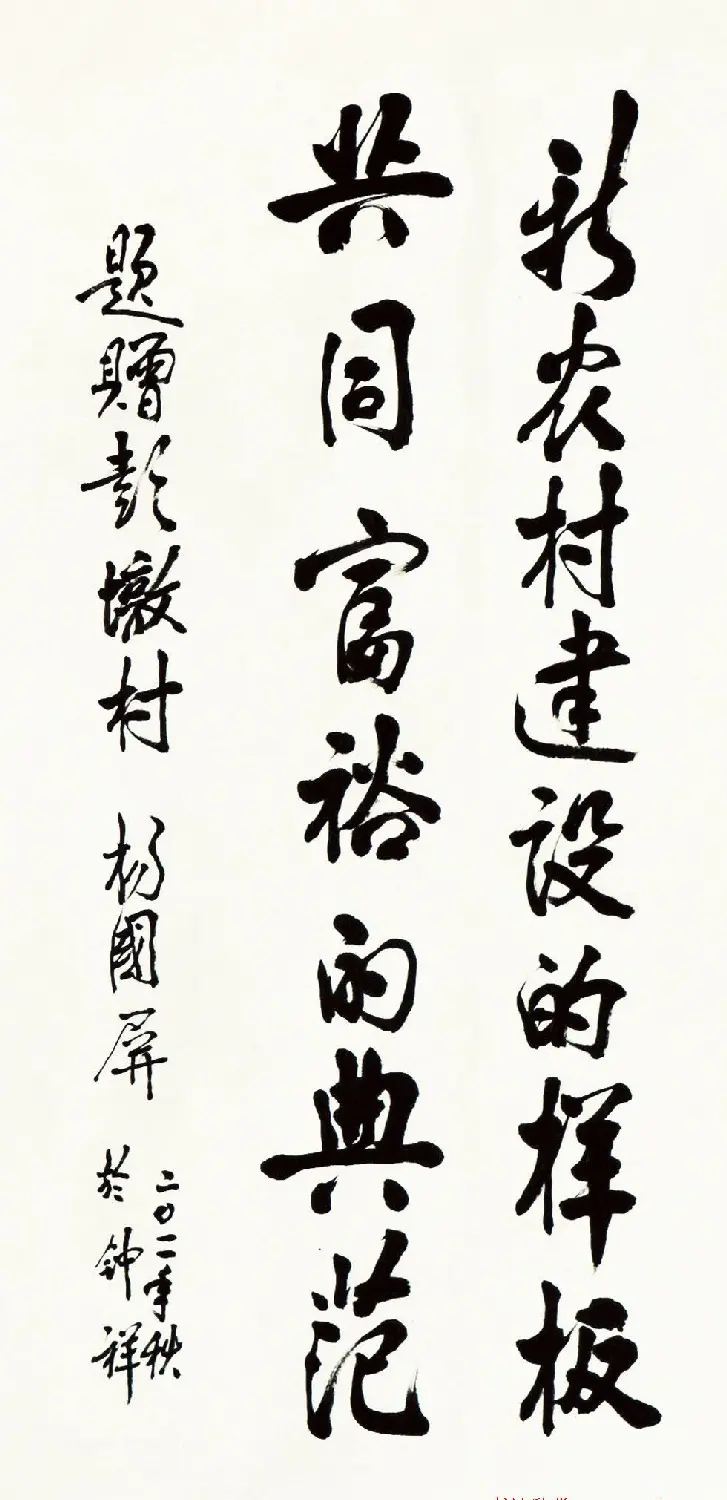 新农村建设的样板
共同富裕的典范
题赠彭墩村 杨國屏
二〇一一年秋
於钟祥